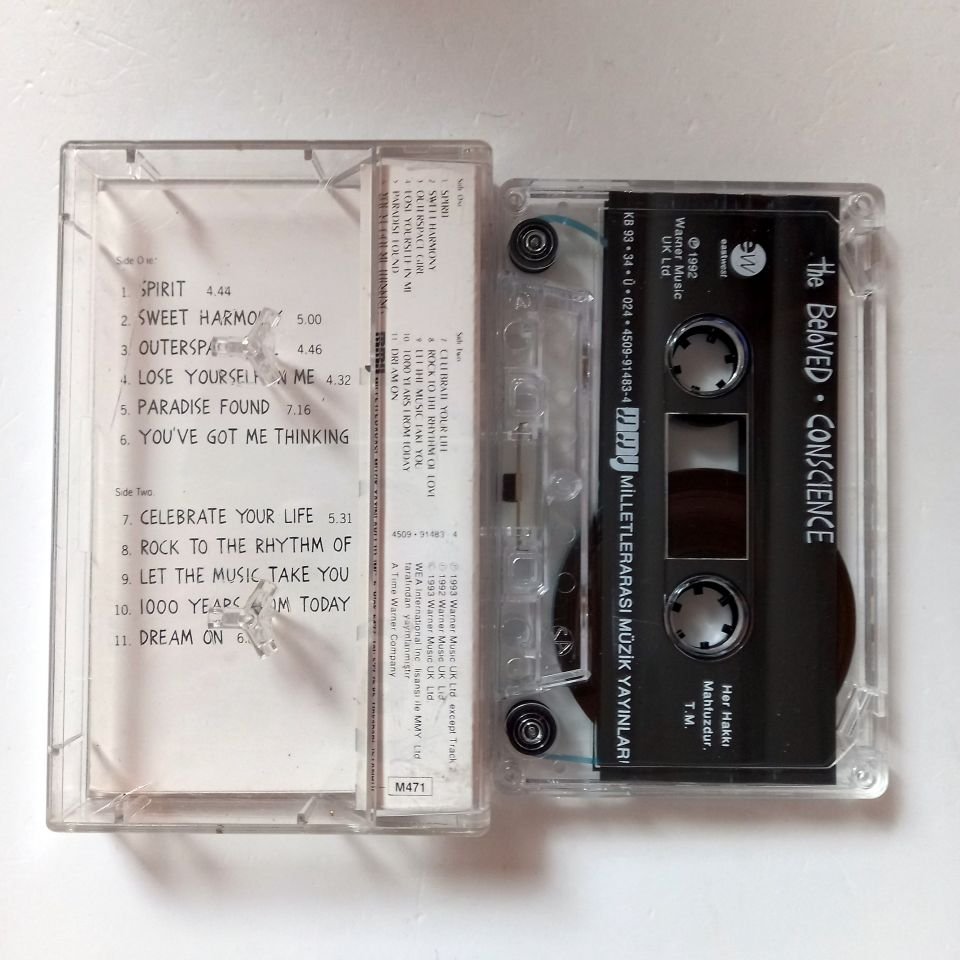 Side One:
1. SPIRIT 4.44
2. SWEET HARMONY 5.00
3. OUTERSPA 4.46
4. LOSE YOURSELF IN ME 4.32
5. PARADISE FOUND 7.16
6. YOU'VE GOT ME THINKING
Side Two.
7. CELEBRATE YOUR LIFE 5.31
8. ROCK TO THE RHYTHM OF
9. LET THE MUSIC TAKE YOU
10. 1000 YEARS FROM TODAY
11. DREAM ON 6.
Side One
1 SPIRIT
2 SWEET HARMONY
3 OUTERSPACE GIRL
4 LOSE YOURSELF IN ME
5 PARADISE FOUND
YOU'VE GOT ME THINKING
Side Two
7 CELEBRATE YOUR LIFE
8 ROCK TO THE RHYTHM OF LOVE
9 LET THE MUSIC TAKE YOU
10 1000 YEARS FROM TODAY
11 DREAM ON
4509 • 91483 4
℗ 1993 Warner Music UK Ltd except Track 2
℗ 1992 Warner Music UK Ltd
© 1993 Warner Music UK Ltd
WEA International Inc lisansı ile MMY Ltd
tarafından yayınlanmıştır
A Time Warner Company
M471
the BELOVED • CONSCIENCE
ew
eastwest
℗ 1992
Warner Music
UK Ltd
Her Hakkı
Mahfuzdur.
T.M.
KB 93 • 34 • Ü • 024 • 4509-91483-4 MMY MİLLETLERARASI MÜZİK YAYINLARI